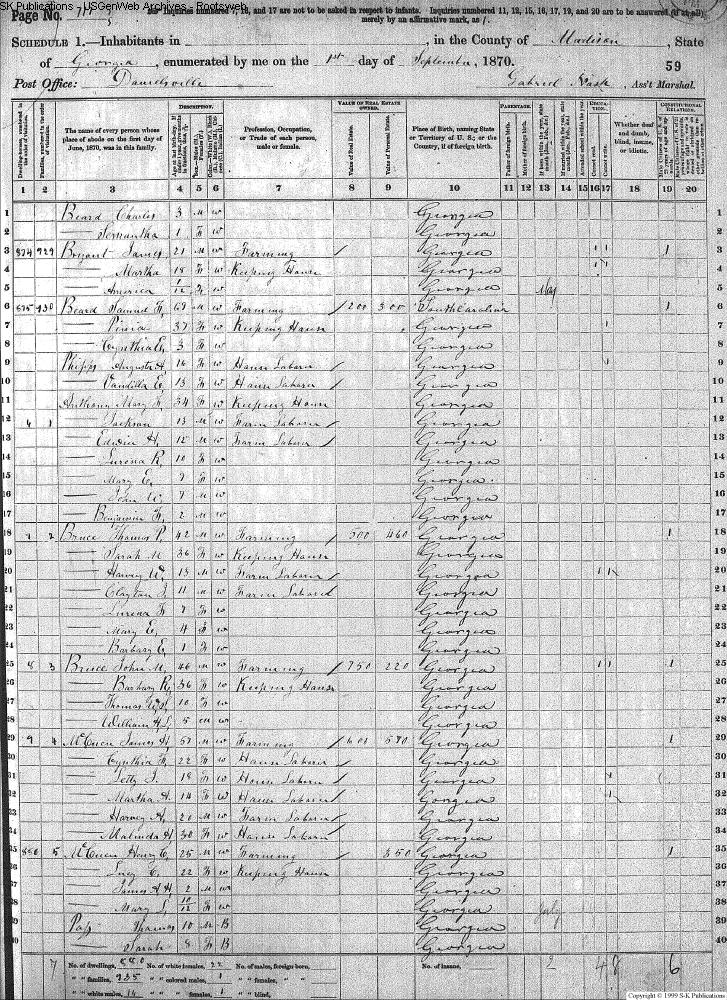 SK Publications - USGenWeb Archives - Rootsweb
Page No. 
Inquiries numbered 7, 16, and 17 are not to be asked in respect to infants. Inquiries numbered 11, 12, 15, 16, 17, 19, and 20 are to be answered (if at all) merely by an affirmative mark, as /.
SCHEDULE 1.—Inhabitants in , in the County of Madison, State
of Georgia, enumerated by me on the 1st day of September, 1870. 59
Post Office: Danielsville Gabriel Nash, Ass't Marshal.
DESCRIPTION. VALUE OF REAL ESTATE OWNED. PARENTAGE. EDUCATION. CONSTITUTIONAL RELATIONS.
The name of every person whose place of abode on the first day of June, 1870, was in this family.
Profession, Occupation, or Trade of each person, male or female.
Value of Real Estate.
Value of Personal Estate.
Place of Birth, naming State or Territory of U. S.; or the Country, if of foreign birth.
Father of foreign birth.
Mother of foreign birth.
Attended school within the year.
Cannot read.
Cannot write.
Whether deaf and dumb, blind, insane, or idiotic.
1 2 3 4 5 6 7 8 9 10 11 12 13 14 15 16 17 18 19 20
1 Beard Charles 3 M W Georgia
2 — Semantha 1 F W Georgia
3 874 929 Bryant James 21 M W Farming / Georgia 1 1 1
4 — Martha 18 F W Keeping House Georgia 1 1
5 — America 1/12 F W Georgia May
6 875 930 Beard Samuel F. 69 M W Farming / 200 300 South Carolina 1
7 — 37 F W Keeping House Georgia 1
8 — Cynthia E. 3 F W Georgia
9 Phipps Augusta A. 16 F W House Laborer / Georgia
10 — E. 13 F W House Laborer / Georgia
11 Anthony Mary F. 34 F W Keeping House Georgia
12 6 1 — Jackson 13 M W Farm Laborer / Georgia
13 — Edwin H. 12 M W Farm Laborer / Georgia
14 — Lurena R. 10 F W Georgia
15 — Mary E. 9 F W Georgia
16 — John W. 7 M W Georgia
17 — Benjamin F. 2 M W Georgia
18 7 2 Bruce Thomas P. 42 M W Farming / 500 460 Georgia 1
19 — Sarah M. 36 F W Keeping House Georgia
20 — Harvey W. 13 M W Farm Laborer / Georgia 1 1
21 — Clayton J. 11 M W Farm Laborer Georgia
22 — Lurena F. 7 F W Georgia
23 — Mary E. 4 F W Georgia
24 — Barbary E. 1 F W Georgia
25 8 3 Bruce John M. 46 M W Farming / 750 220 Georgia 1 1 1
26 — Barbary R. 36 F W Keeping House Georgia
27 — Thomas 10 F W Georgia
28 — William H. S. 5 M W Georgia
29 9 4 McCuen James H. 57 M W Farming / 600 580 Georgia 1
30 — Cynthia F. 22 F W House Laborer / Georgia
31 — Letty J. 18 F W House Laborer / Georgia 1
32 — Martha A. 14 F W House Laborer / Georgia 1
33 — Harvey A. 20 M W Farm Laborer / Georgia
34 — Malinda H. 30 F W House Laborer / Georgia
35 880 5 McCuen Henry C. 25 M W Farming / 350 Georgia 1
36 — Lucy C. 22 F W Keeping House Georgia
37 — James A. H. 2 M W Georgia
38 — Mary L. 10/12 F W Georgia July
39 Pass Thomas 10 M B Georgia
40 — Sarah 8 F B Georgia
7 No. of dwellings, 880 No. of white females, 22 No. of males, foreign born, No. of insane, 2 4 8 6
" " families, 935 " " colored males, 1 " " females, " "
" " white males, 16 " " " females, 1 " " blind,
Copyright © 1999 S-K Publications